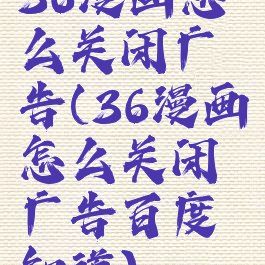 36漫画怎
么关闭广
告(36漫画
怎么关闭
广告百度
知道)